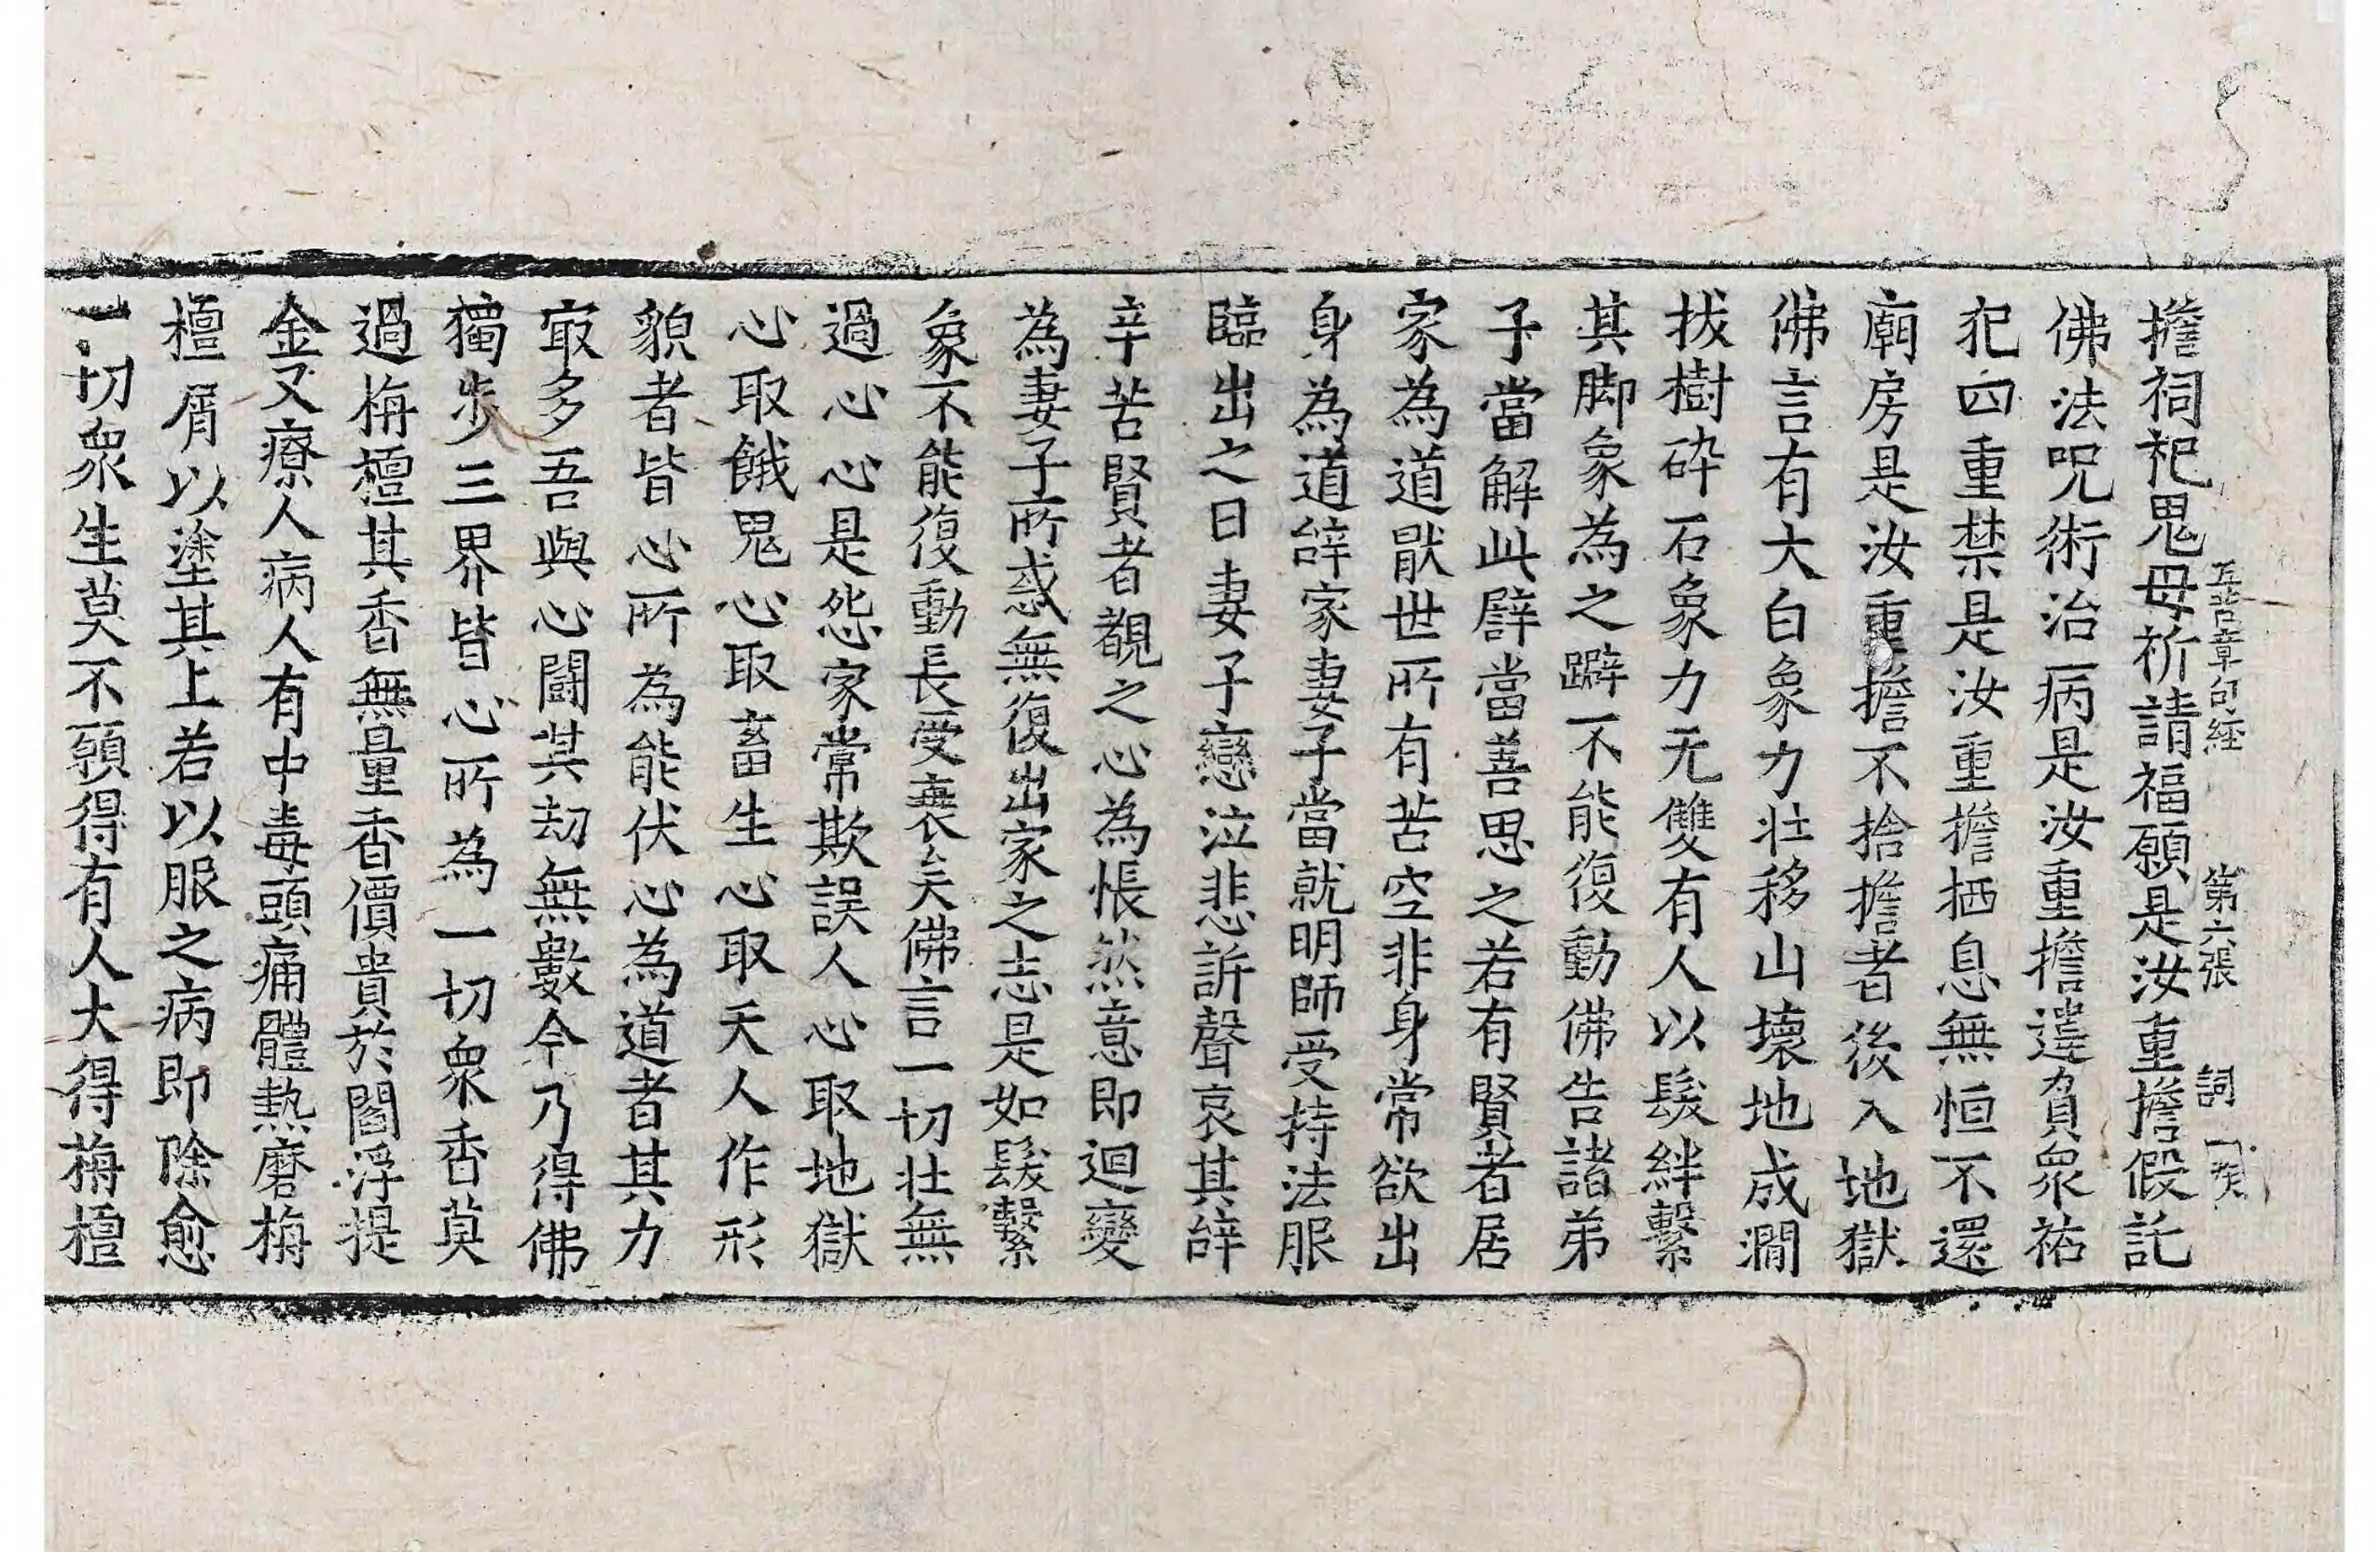 五苦章句經 第六張 詞
擔祠祀鬼母祈請福願是汝重擔假託
佛法呪術治病是汝重擔違負衆祐
犯四重禁是汝重擔栖息無恒不還
廟房是汝重擔不捨擔者後入地獄
佛言有大白象力壯移山壞地成澗
拔樹碎石象力无雙有人以髮絆繫
其脚象為之躃不能復動佛告諸弟
子當解此譬當善思之若有賢者居
家為道猒世所有苦空非身常欲出
身為道辞家妻子當就明師受持法服
臨出之日妻子戀泣悲訴聲哀其辞
辛苦賢者覩之心為悵然意即迴變
為妻子所惑無復出家之志是如髮繫
象不能復動長受衰矣佛言一切壯無
過心心是怨家常欺誤人心取地獄
心取餓鬼心取畜生心取天人作形
貌者皆心所為能伏心為道者其力
冣多吾與心鬪其劫無數今乃得佛
獨步三界皆心所為一切衆香莫
過栴檀其香無量香價貴於閻浮提
金又療人病人有中毒頭痛體熱磨栴
檀屑以塗其上若以服之病即除愈
一切衆生莫不願得有人大得栴檀